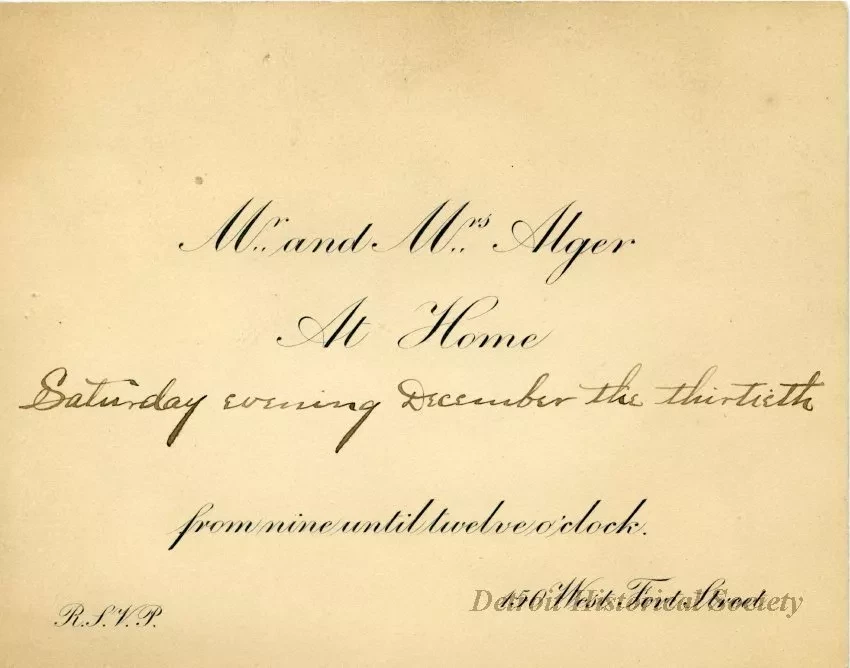 Mr. and Mrs. Alger
At Home
Saturday evening December the thirtieth
from nine until twelve o'clock.
R.S.V.P.
150 West Fort Street
Detroit Historical Society